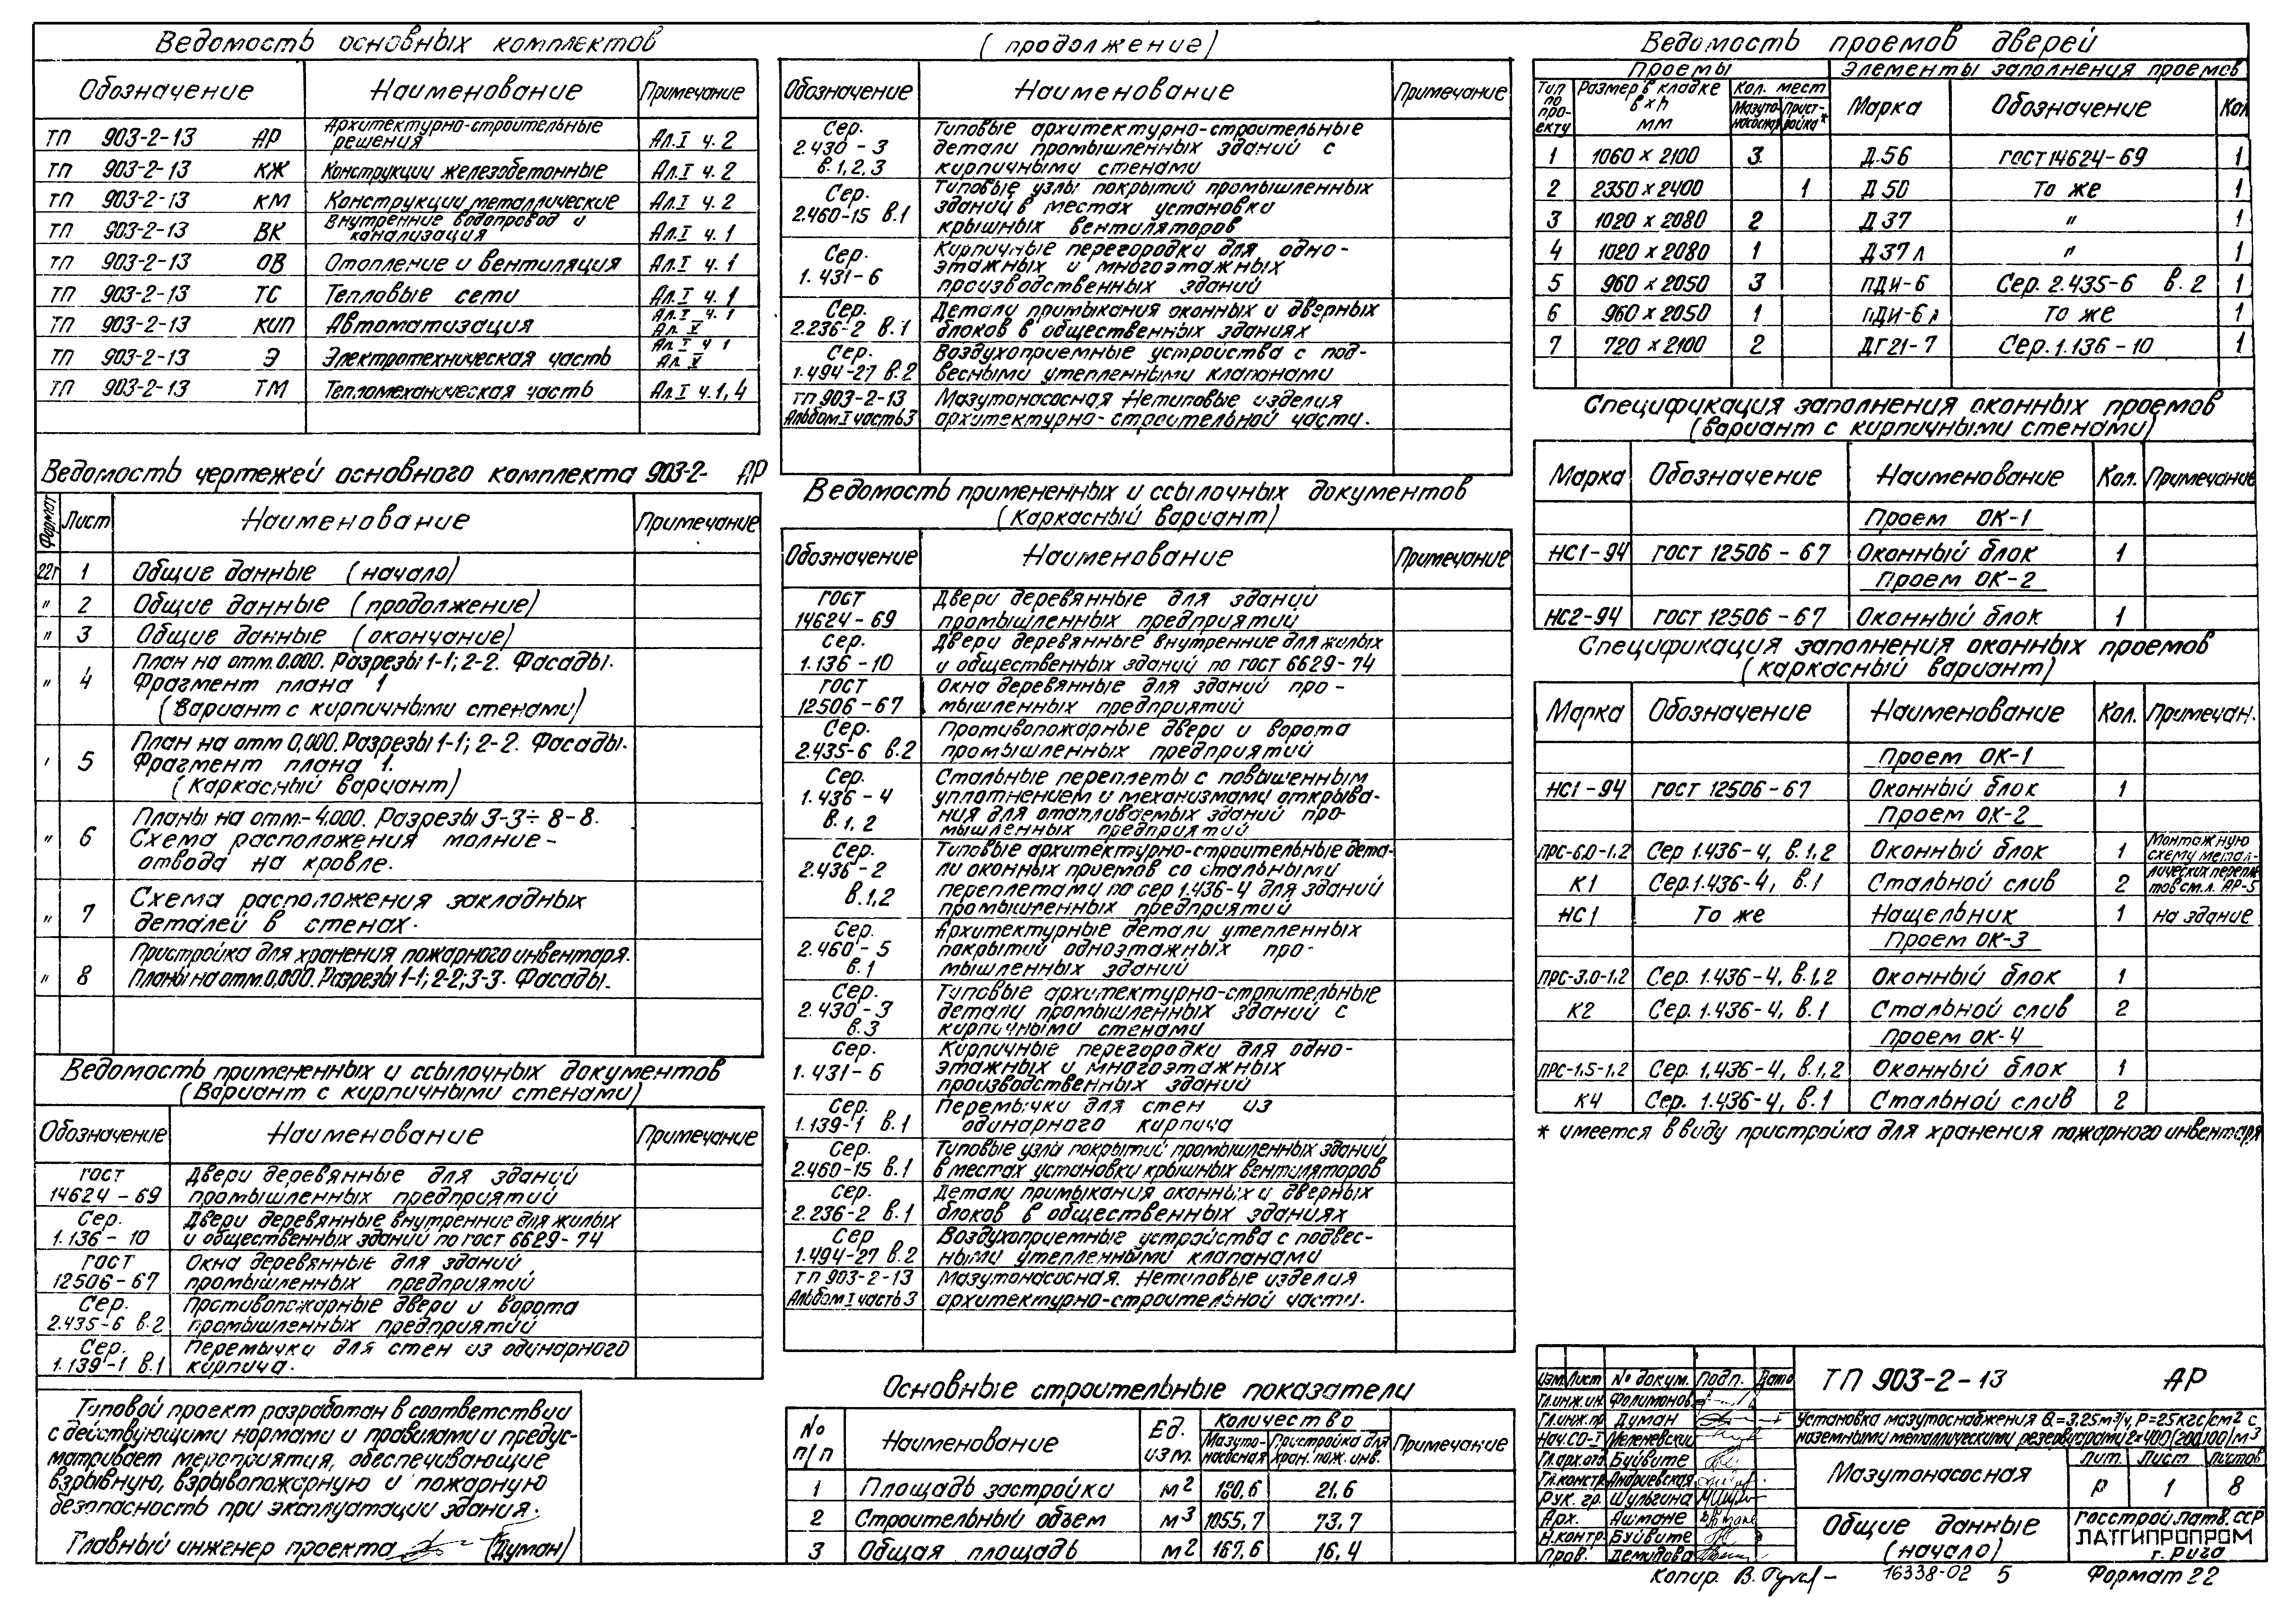 Ведомость основных комплектов
Обозначение Наименование Примечание
ТП 903-2-13 АР Архитектурно-строительные решения Ал.I ч.2
ТП 903-2-13 КЖ Конструкции железобетонные Ал.I ч.2
ТП 903-2-13 КМ Конструкции металлические Ал.I ч.2
ТП 903-2-13 ВК Внутренние водопровод и канализация Ал.I ч.1
ТП 903-2-13 ОВ Отопление и вентиляция Ал.I ч.1
ТП 903-2-13 ТС Тепловые сети Ал.I ч.1
ТП 903-2-13 КИП Автоматизация Ал.I ч.1 Ал. V
ТП 903-2-13 Э Электротехническая часть Ал.I ч 1 Ал. V
ТП 903-2-13 ТМ Тепломеханическая часть Ал.I ч.1,4
Ведомость чертежей основного комплекта 903-2- АР
Формат Лист Наименование Примечание
22г 1 Общие данные (начало)
" 2 Общие данные (продолжение)
" 3 Общие данные (окончание)
План на отм.0.000. Разрезы 1-1; 2-2. Фасады.
" 4 Фрагмент плана 1
(Вариант с кирпичными стенами)
План на отм 0,000. Разрезы 1-1; 2-2. Фасады.
' 5 Фрагмент плана 1.
(Каркасный вариант)
Планы на отм.-4,000. Разрезы 3-3÷8-8.
" 6 Схема расположения молние-
отвода на кровле.
Схема расположения закладных
" 7 деталей в стенах.
Пристройка для хранения пожарного инвентаря.
" 8 Планы на отм.0,000. Разрезы 1-1; 2-2,3-3. Фасады.
Ведомость примененных и ссылочных документов
(Вариант с кирпичными стенами)
Обозначение Наименование Примечание
ГОСТ Двери деревянные для зданий
14624-69 промышленных предприятий
Сер. Двери деревянные внутренние для жилых
1.136-10 и общественных зданий по ГОСТ 6629-74
ГОСТ Окна деревянные для зданий
12506-67 промышленных предприятий
Сер. Противопожарные двери и ворота
2.435-6 в.2 промышленных предприятий
Сер. Перемычки для стен из одинарного
1.139-1 в.1 кирпича.
Типовой проект разработан в соответствии
с действующими нормами и правилами и предус-
матривает мероприятия, обеспечивающие
взрывную, взрывопожарную и пожарную
безопасность при эксплуатации здания.
Главный инженер проекта (Думан)
(продолжение)
Обозначение Наименование Примечание
Сер. Типовые архитектурно-строительные
2.430-3 детали промышленных зданий с
в.1,2,3 кирпичными стенами
Сер. Типовые узлы покрытий промышленных
2.460-15 в.1 зданий в местах установки
крышных вентиляторов
Сер. Кирпичные перегородки для одно-
1.431-6 этажных и многоэтажных
производственных зданий
Сер. Детали примыкания оконных и дверных
2.236-2 в.1 блоков в общественных зданиях
Сер. Воздухоприемные устройства с под-
1.494-27 в.2 весными утепленными клапанами
ТП 903-2-13 Мазутонасосная Нетиповые изделия
Альбом I часть 3 архитектурно-строительной части.
Ведомость примененных и ссылочных документов
(Каркасный вариант)
Обозначение Наименование Примечание
ГОСТ Двери деревянные для зданий
14624-69 промышленных предприятий
Сер. Двери деревянные внутренние для жилых
1.136-10 и общественных зданий по ГОСТ 6629-74
ГОСТ Окна деревянные для зданий про-
12506-67 мышленных предприятий
Сер. Противопожарные двери и ворота
2.435-6 в.2 промышленных предприятий
Сер. Стальные переплеты с повышенным
1.436-4 уплотнением и механизмами открыва-
в.1,2 ния для отапливаемых зданий про-
мышленных предприятий
Сер. Типовые архитектурно-строительные дета-
2.436-2 ли оконных приемов со стальными
в.1,2 переплетами по сер 1.436-4 для зданий
промышленных предприятий
Сер. Архитектурные детали утепленных
2.460-5 покрытий одноэтажных про-
в.1 мышленных зданий
Сер. Типовые архитектурно-строительные
2.430-3 детали промышленных зданий с
в.3 кирпичными стенами
Сер. Кирпичные перегородки для одно-
1.431-6 этажных и многоэтажных
производственных зданий
Сер. Перемычки для стен из
1.139-1 в.1 одинарного кирпича
Сер. Типовые узлы покрытий промышленных зданий
2.460-15 в.1 в местах установки крышных вентиляторов
Сер. Детали примыкания оконных и дверных
2.236-2 в.1 блоков в общественных зданиях
Сер Воздухоприемные устройства с подвес-
1.494-27 в.2 ными утепленными клапанами
ТП 903-2-13 Мазутонасосная. Нетиповые изделия
Альбом I часть 3 архитектурно-строительной части.
Основные строительные показатели
№ п/п Наименование Ед. изм. Количество Примечание
Мазуто-насосная Пристройка для хран. пож. инв.
1 Площадь застройки м² 180,6 21,6
2 Строительный объем м³ 1055,7 73,7
3 Общая площадь м² 167,6 16,4
Ведомость проемов дверей
Проемы Элементы заполнения проемов
Тип по про-екту Размер в кладке в×h мм Кол. мест Марка Обозначение Кол
Мазуто-насосная Прист-ройка*
1 1060 × 2100 3 Д.56 ГОСТ 14624-69 1
2 2350 × 2400 1 Д 50 То же 1
3 1020 × 2080 2 Д 37 " 1
4 1020 × 2080 1 Д 37 л " 1
5 960 × 2050 3 ПДИ-6 Сер. 2.435-6 в.2 1
6 960 × 2050 1 ПДИ-6 л То же 1
7 720 × 2100 2 ДГ21-7 Сер. 1.136-10 1
Спецификация заполнения оконных проемов
(вариант с кирпичными стенами)
Марка Обозначение Наименование Кол. Примечание
Проем ОК-1
НС1-94 ГОСТ 12506-67 Оконный блок 1
Проем ОК-2
НС2-94 ГОСТ 12506-67 Оконный блок 1
Спецификация заполнения оконных проемов
(каркасный вариант)
Марка Обозначение Наименование Кол. Примечан.
Проем ОК-1
НС1-94 ГОСТ 12506-67 Оконный блок 1
Проем ОК-2
ПРС-6,0-1,2 Сер 1.436-4, в.1,2 Оконный блок 1 Монтажную схему метал-
К1 Сер.1.436-4, в.1 Стальной слив 2 лических перепле тов см.л. АР-5
НС1 То же Нащельник 1 на здание
Проем ОК-3
ПРС-3,0-1,2 Сер. 1.436-4, в.1,2 Оконный блок 1
К2 Сер. 1.436-4, в.1 Стальной слив 2
Проем ОК-4
ПРС-1,5-1,2 Сер. 1,436-4, в.1,2 Оконный блок 1
К4 Сер. 1.436-4, в.1 Стальной слив 2
* имеется в виду пристройка для хранения пожарного инвентаря
Изм. Лист № докум. Подп. Дата
Гл.инж.ин. Филимонов
Гл.инж.пр Думан
Нач.СО-I Меленевский
Гл.арх.отд Буйвите
Гл.констр. Андриевская
Рук. гр. Шульгина
Арх. Аштане
Н.контр. Буйвите
Пров. Демидова
ТП 903-2-13 АР
Установка мазутоснабжения Q=3,25м³/ч, Р=25кгс/см² с
наземными металлическими резервуарами 2×400(200,100)м³
Мазутонасосная
Лит. Лист Листов
Р 1 8
Общие данные
(начало)
Госстрой Латв. ССР
ЛАТГИПРОПРОМ
г. Рига
Копир. 16338-02 5 Формат 22